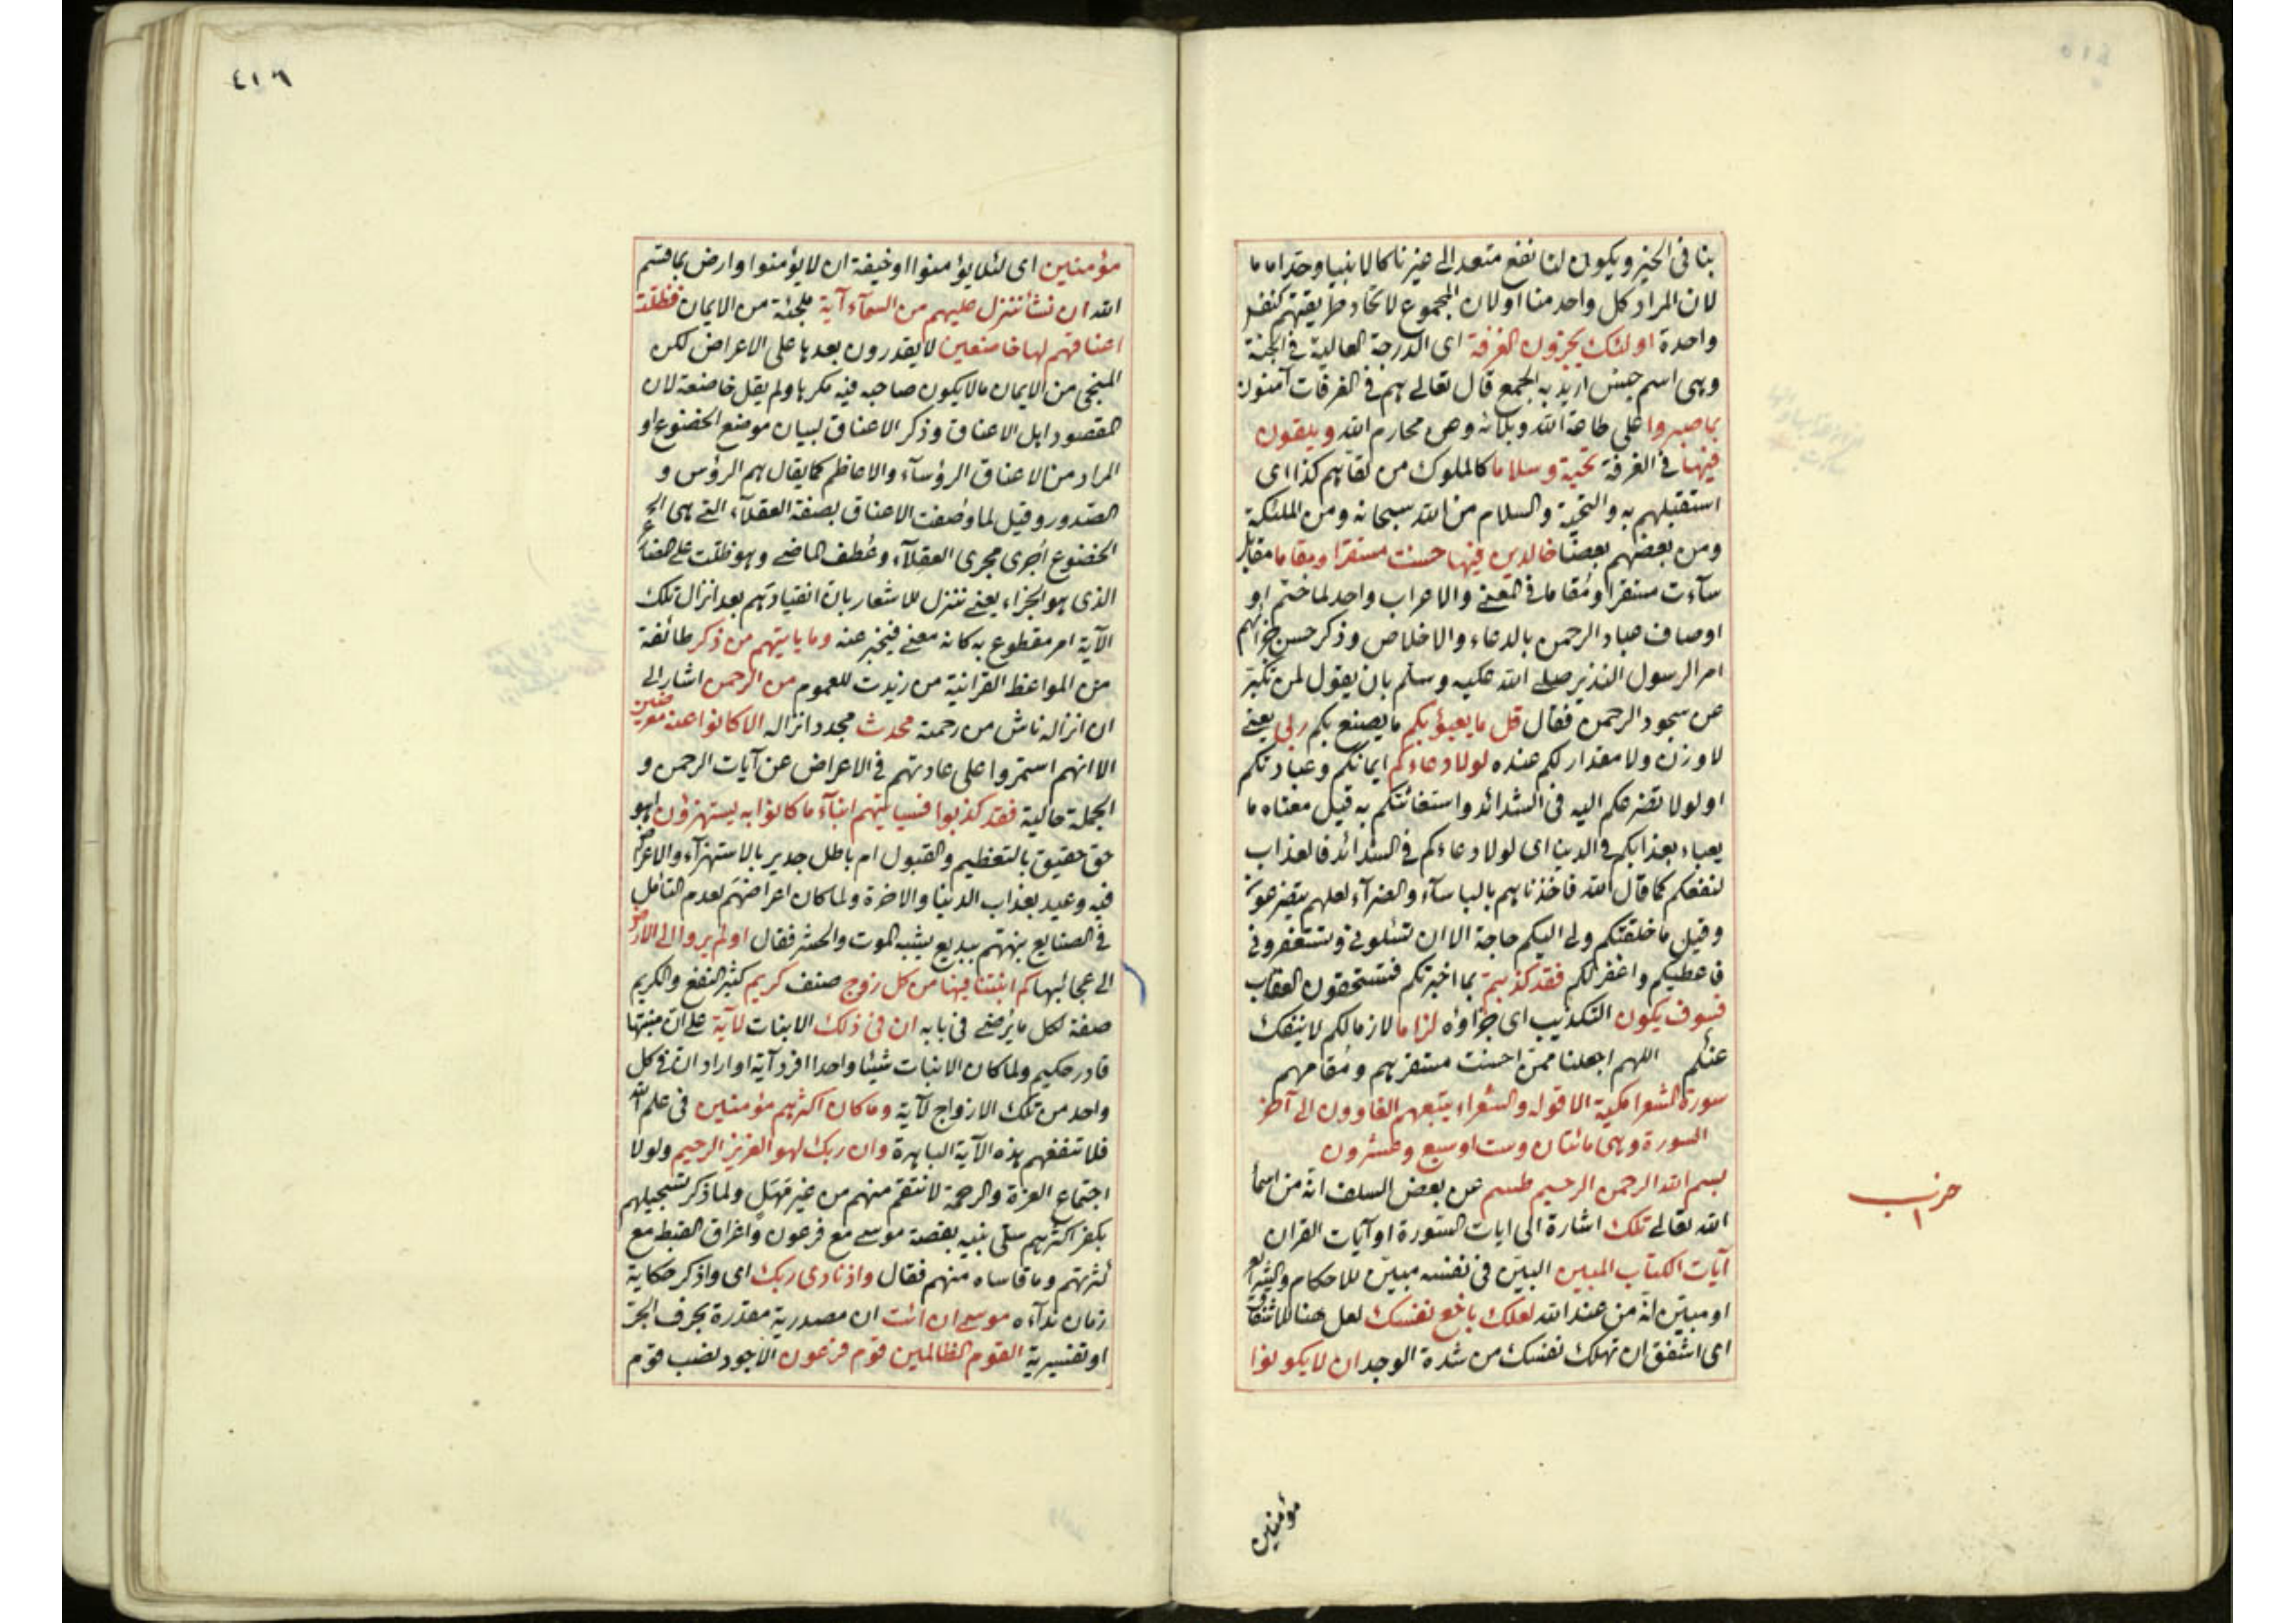 بنا فى الخير ويكون لنا نفع متعد الى غيرنا كالانبيا وحد اماما
لان المراد كل واحد منا او لان المجموع لاتحاد طريقتهم كنفس
واحدة اولئك يجزون الغرفة اى الدرجة العالية فى الجنة
وهى اسم جنس اريد به الجمع قال تعالى هم فى الغرفات آمنون
بما صبروا على طاعة الله وبلائه وعن محارم الله ويلقون
فيها فى الغرفة تحية وسلاما كالملوك من لقاهم كذا اى
استقبلهم به والتحية والسلام من الله سبحانه ومن الملئكة
ومن بعضهم بعضا خالدين فيها حسنت مستقرا ومقاما مقابل
سآءت مستقرا ومقاما فى المعنى والاعراب واحد لما ختم او
اوصاف عباد الرحمن بالدعاء والاخلاص وذكر حسن جزائهم
امر الرسول النذير صلى الله عليه وسلم بان يقول لمن تكبر
عن سجود الرحمن فقال قل ما يعبؤ بكم ما يصنع بكم ربى يعنى
لا وزن ولا مقدار لكم عنده لولا دعاءكم ايمانكم وعبادتكم
او لولا تضرعكم اليه فى الشدائد واستغاثتكم به قيل معناه ما
يعباء بعذابكم فى الدنيا اى لولا دعاءكم فى الشدائد فالعذاب
لنفعكم كما قال الله فاخذناهم بالباسآء والضرآء لعلهم يتضرعون
وقيل ما خلقتكم ولى اليكم حاجة الا ان تسئلونى وتستغفرونى
فاعطيكم واغفر لكم فقد كذبتم بما اخبرتكم فتستحقون العقاب
فسوف يكون التكذيب اى جزاؤه لزاما لازما لكم لا ينفك
عنكم اللهم اجعلنا ممن احسنت مستقرهم ومقامهم
سورة الشعرا مكية الا قوله والشعراء يتبعهم الغاوون الى آخر
السورة وهى مائتان وست او سبع وعشرون
بسم الله الرحمن الرحيم طسم عن بعض السلف انه من اسمآ
الله تعالى تلك اشارة الى ايات السورة او آيات القران
آيات الكتاب المبين البين فى نفسه مبين للاحكام والشرايع
او مبين انه من عند الله لعلك باخع نفسك لعل هنا للاشفاق
اى اشفق ان تهلك نفسك من شدة الوجد ان لا يكونوا
حزب
١
مؤمنين
٤١٦
مؤمنين اى لئلا يؤمنوا او خيفة ان لا يؤمنوا وارض بما قسم
الله ان نشأ ننزل عليهم من السمآء آية ملجئة من الايمان فظلت
اعناقهم لها خاضعين لا يقدرون بعدها على الاعراض لكن
المنجى من الايمان ما لا يكون صاحبه فيه مكرها ولم يقل خاضعة لان
المقصود اهل الاعناق وذكر الاعناق لبيان موضع الخضوع او
المراد من الاعناق الرؤسآء والاعاظم كما يقال هم الرؤس و
الصدور وقيل لما وصفت الاعناق بصفة العقلآء التى هى
الخضوع اجرى مجرى العقلآء وعطف الماضى وهو ظلت على المضارع
الذى هو الجزاء يعنى ننزل للاشعار بان انقيادهم بعد انزال تلك
الآية امر مقطوع به كانه معنى فيخبر عنه وما ياتيهم من ذكر طائفة
من المواعظ القرانية من زيدت للعموم من الرحمن اشار الى
ان انزاله ناش من رحمة محدث مجدد انزاله الا كانوا عنه معرضين
الا انهم استمروا على عادتهم فى الاعراض عن آيات الرحمن و
الجملة حالية فقد كذبوا فسياتيهم انبآء ما كانوا به يستهزؤن اهو
حق حقيق بالتعظيم والقبول ام باطل جدير بالاستهزآء والاعراض
فيه وعيد بعذاب الدنيا والاخرة ولما كان اعراضهم لعدم التأمل
فى الصنايع نبههم ببديع يشبه الموت والحشر فقال اولم يروا الى الارض
الى عجائبها كم انبتنا فيها من كل زوج صنف كريم كثير النفع والكريم
صفة لكل ما يرضى فى بابه ان فى ذلك الانبات لآية على ان منبتها
قادر حكيم ولما كان الانبات شيئا واحدا افرد آية او اراد ان فى كل
واحد من تلك الازواج لآية وما كان اكثرهم مؤمنين فى علم الله
فلا تنفعهم هذه الآية الباهرة وان ربك لهو العزيز الرحيم ولولا
اجتماع العزة والرحمة لانتقم منهم من غير مهل ولما ذكر تسجيلهم
بكفر اكثرهم سلى نبيه بقصة موسى مع فرعون واغراق القبط مع
كثرتهم وما قاساه منهم فقال واذ نادى ربك اى واذكر حكاية
زمان ندآءه موسى ان ائت ان مصدرية مقدرة بحرف الجر
او تفسيرية القوم الظالمين قوم فرعون الاجود نصب قوم